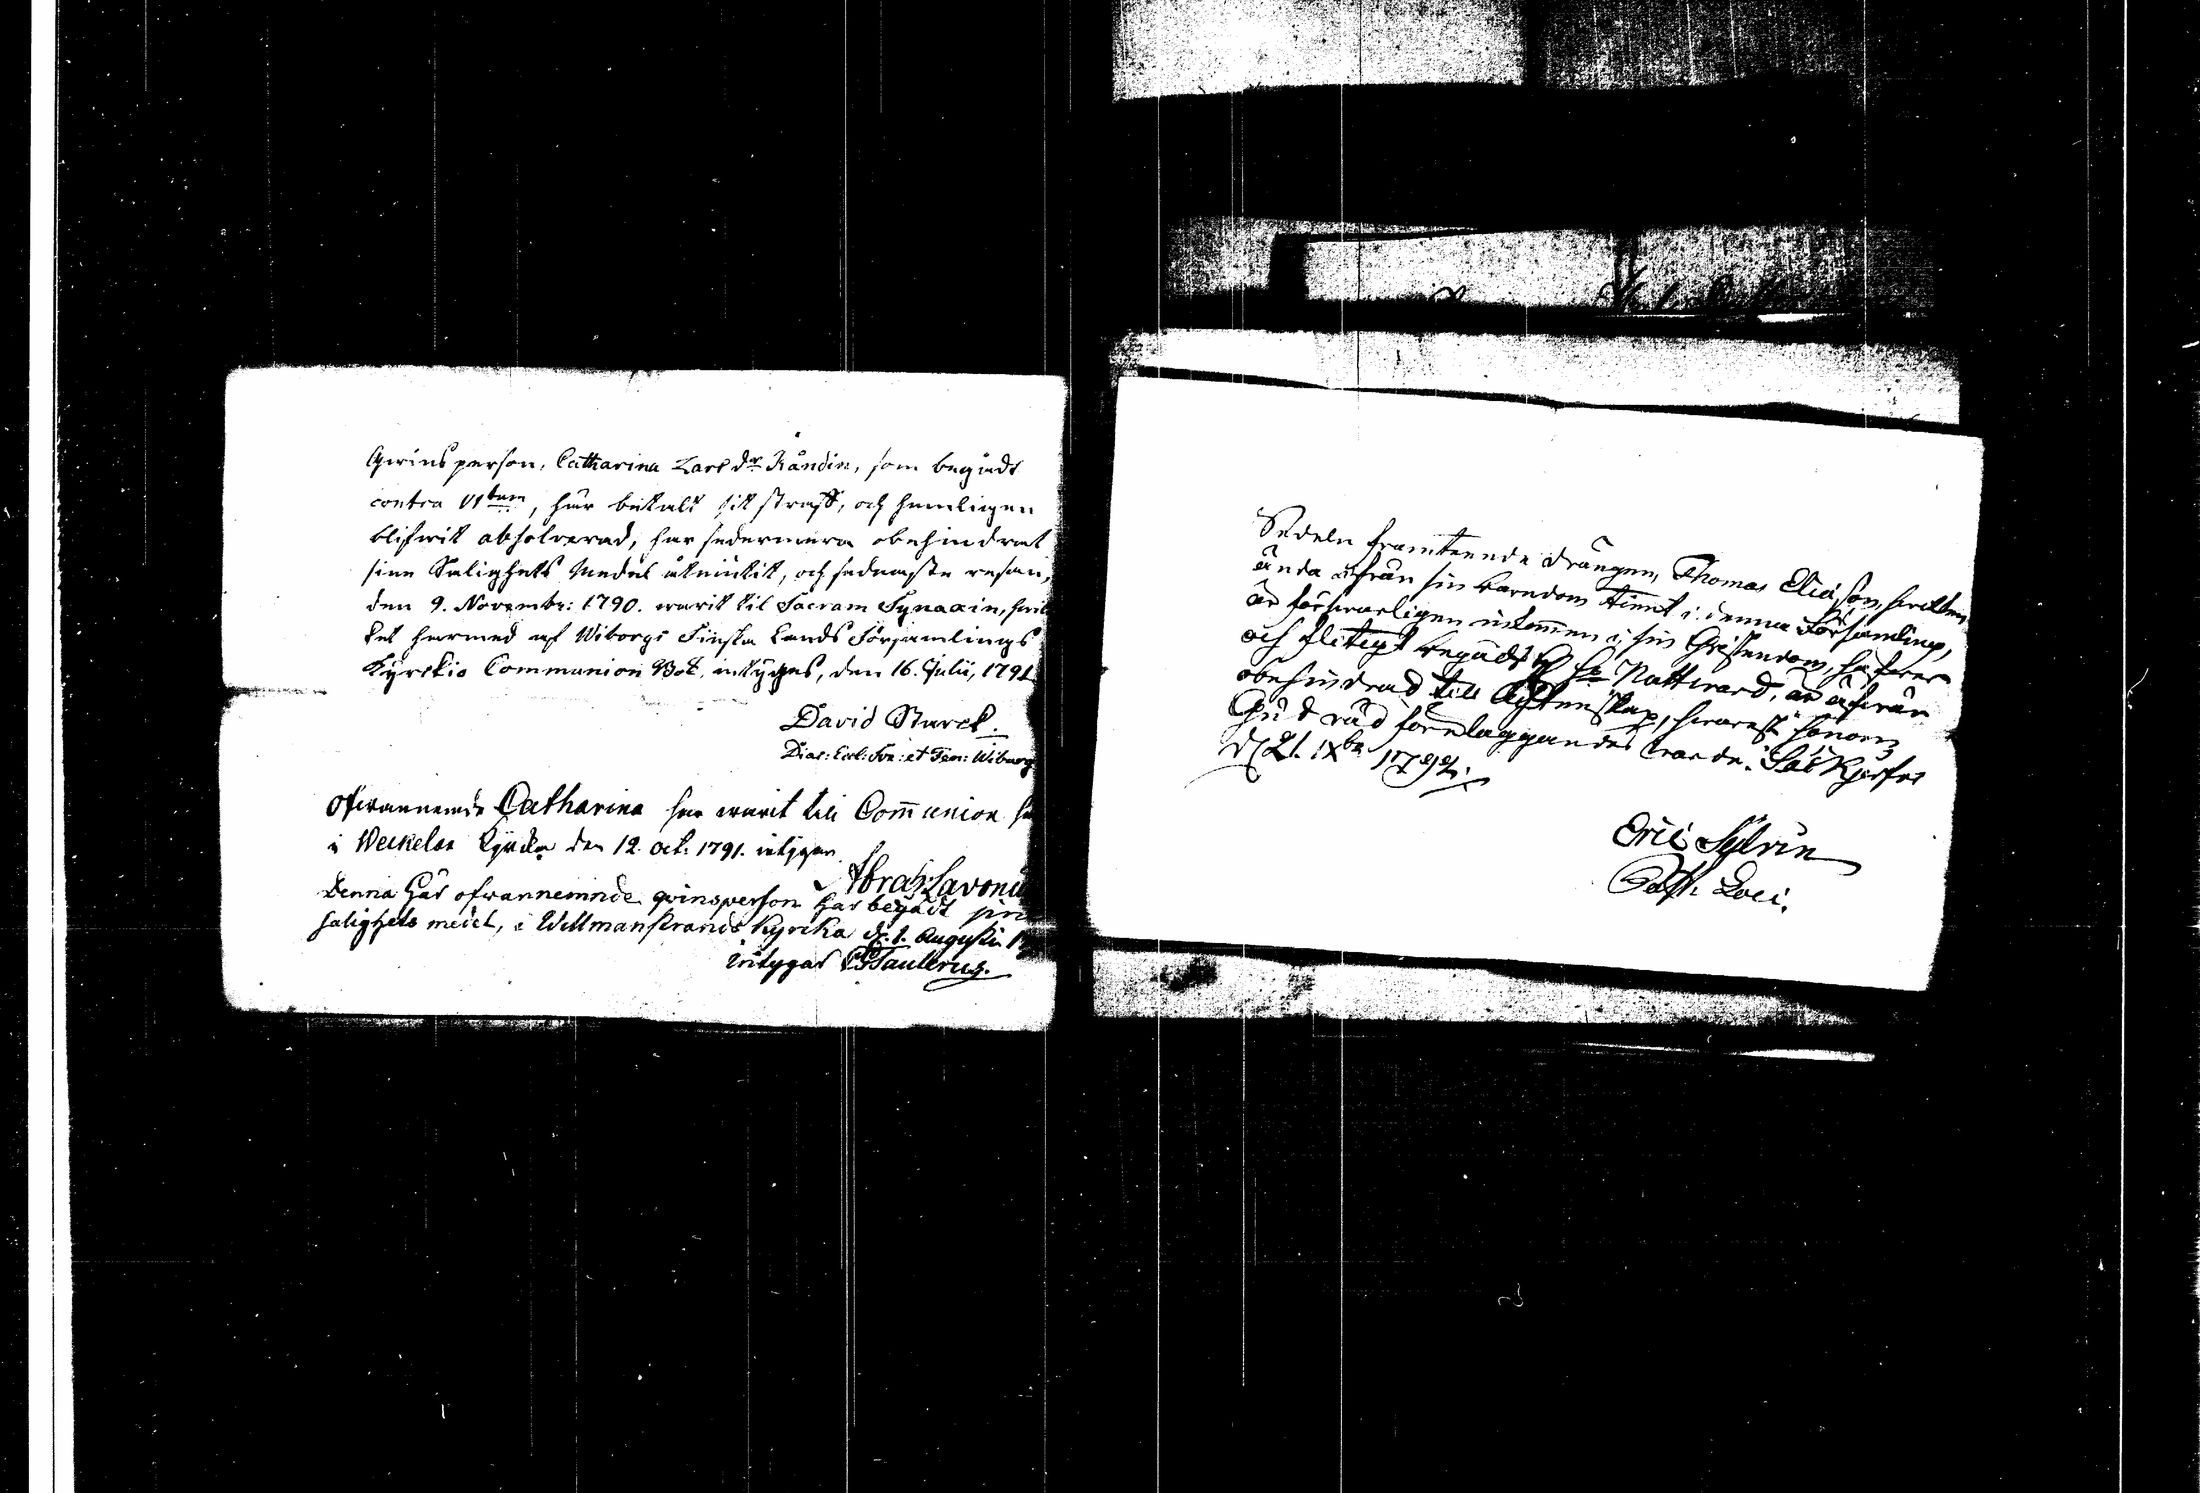 Qwins person, Catharina Lars dr Råndin, som begådt
contra VItum, här betalt sit straff, och hemligen
blifwit absolverad, har sedermera obehindrat
sine Salighets Medel åtniutit, och sednaste resan,
den 9. Novembr: 1790. warit til Sacram Synaxin, hwil
ket hermed af Wiborgs Finska Lands Församlings
Kyrckio Communion Bok intygas, den 16. Julii, 1791
David Starck.
Diac: Eccl: Sve: et Fen: Wiburg
Ofwannemde Catharina har warit till Com̄union
i Weckelax Kyrcka den 12. Oct: 1791. intygar
Abrah: Lavoniu
Denna här ofwannemnde qwinsperson har begådt sin
salighets medel, i Willmanstrands Kyrcka d. 1. Augusti 17
intygar Taulerus.
Sedeln framteende drängen, Thomas Eliæson, hwilken
ända ifrån sin barndom tient i denna Församling,
är försvarligen inkom̄en i sin Christendom, har
och flitegt begådt H. H. Nattward, är äfwen
obehindrad till Ächtenskap, hwarest honom
Gud råd förelaggandes warde. Säckjerfwi
d 21. IXbr 1792.
Eric Sylvin
Past. Loci.